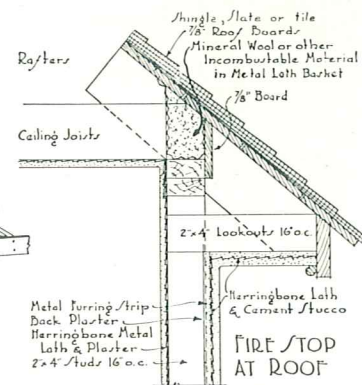 Shingle, Slate or tile
7/8" Roof Boards
Mineral Wool or other
Incombustable Material
in Metal Lath Basket
7/8" Board
Rafters
Ceiling Joists
2"x4" Lookouts 16"o.c.
Herringbone Lath
& Cement Stucco
Metal Furring Strip
Back Plaster
Herringbone Metal
Lath & Plaster
2"x4" Studs 16"o.c.
FIRE STOP
AT ROOF